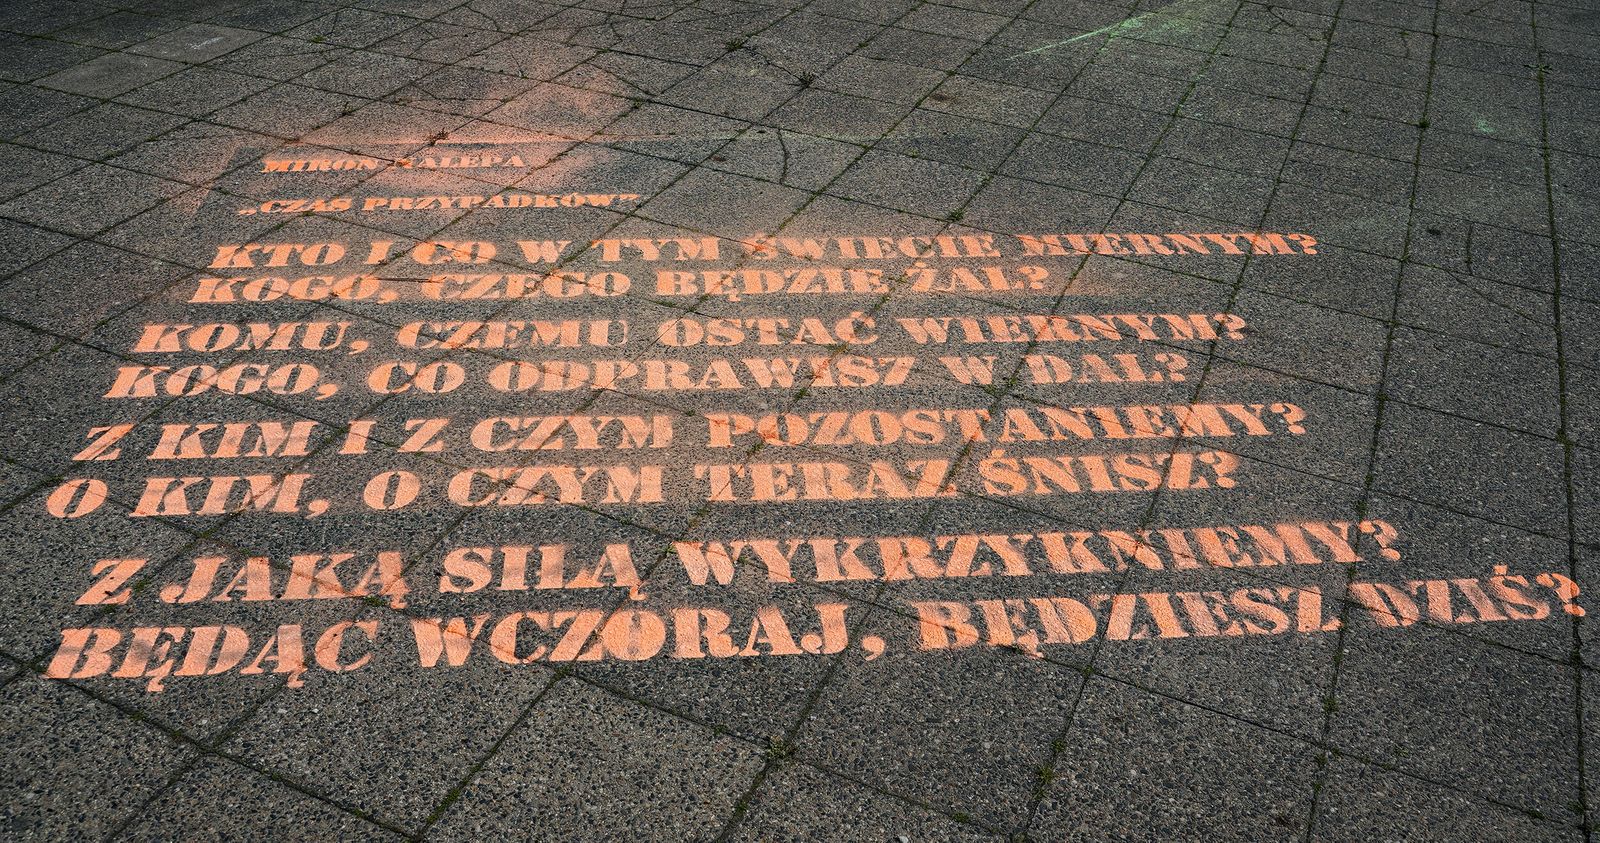 MIRON NALEPA
„CZAS PRZYPADKÓW"
KTO I CO W TYM ŚWIECIE MIERNYM?
KOGO, CZEGO BĘDZIE ŻAL?
KOMU, CZEMU OSTAĆ WIERNYM?
KOGO, CO ODPRAWISZ W DAL?
Z KIM I Z CZYM POZOSTANIEMY?
O KIM, O CZYM TERAZ ŚNISZ?
Z JAKĄ SIŁĄ WYKRZYKNIEMY?
BĘDĄC WCZORAJ, BĘDZIESZ DZIŚ?